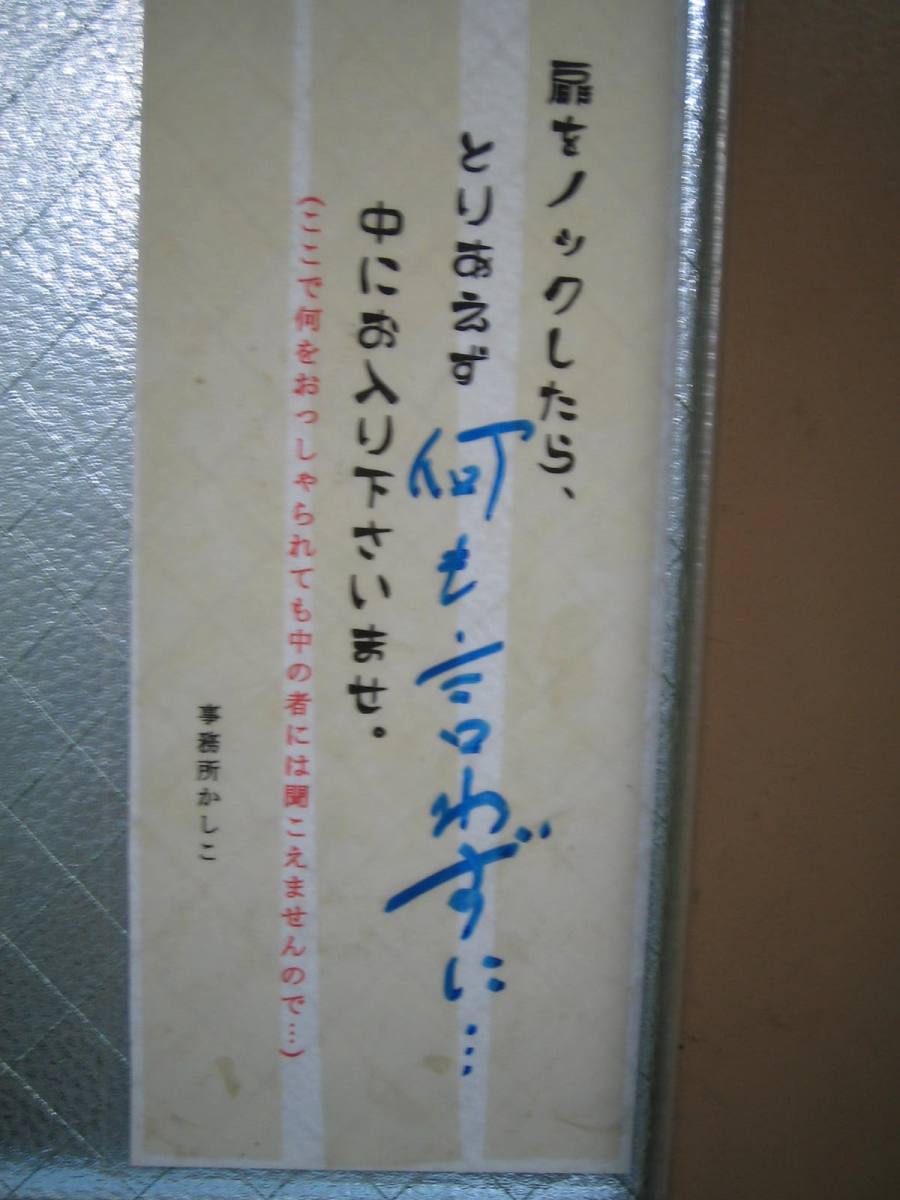 扉をノックしたら、
とりあえず何も言わずに…
中にお入り下さいませ。
(ここで何をおっしゃられても中の者には聞こえませんので…)
事務所かしこ